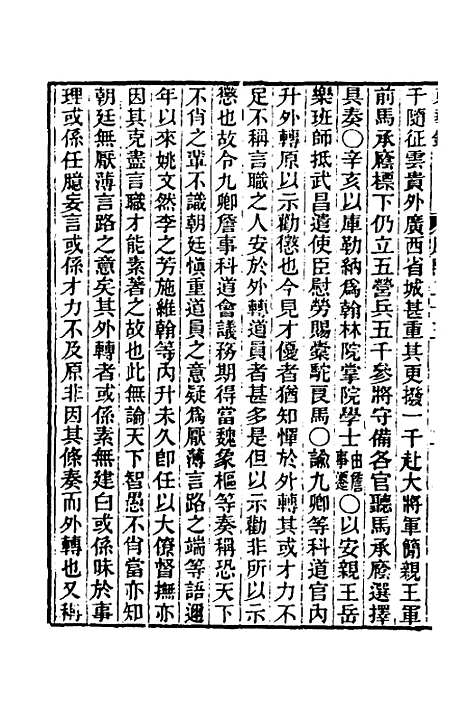 千隨征雲貴外廣西省城甚重其更撥一千赴大將軍簡親王軍
前馬承廕標下仍立五營兵五千參將守備各官聽馬承廕選擇
具奏〇辛亥以庫勒納爲翰林院掌院學士由詹事遷〇以安親王岳
樂班師抵武昌遣使臣慰勞賜糵駝良馬〇諭九卿等科道官內
升外轉原以示勸懲也今見才優者猶知憚於外轉其或才力不
足不稱言職之人安於外轉道員者甚多是但以示勸非所以示
懲也故令九卿詹事科道會議務期得當魏象樞等奏稱恐天下
不肖之輩不識朝廷愼重道員之意疑爲厭薄言路之端等語邇
年以來姚文然李之芳施維翰等內升未久卽任以大僚督撫亦
因其克盡言職才能素著之故也此無論天下智愚不肖當亦知
朝廷無厭薄言路之意矣其外轉者或係素無建白或係昧於事
理或係任臆妄言或係才力不及原非因其條奏而外轉也又稱